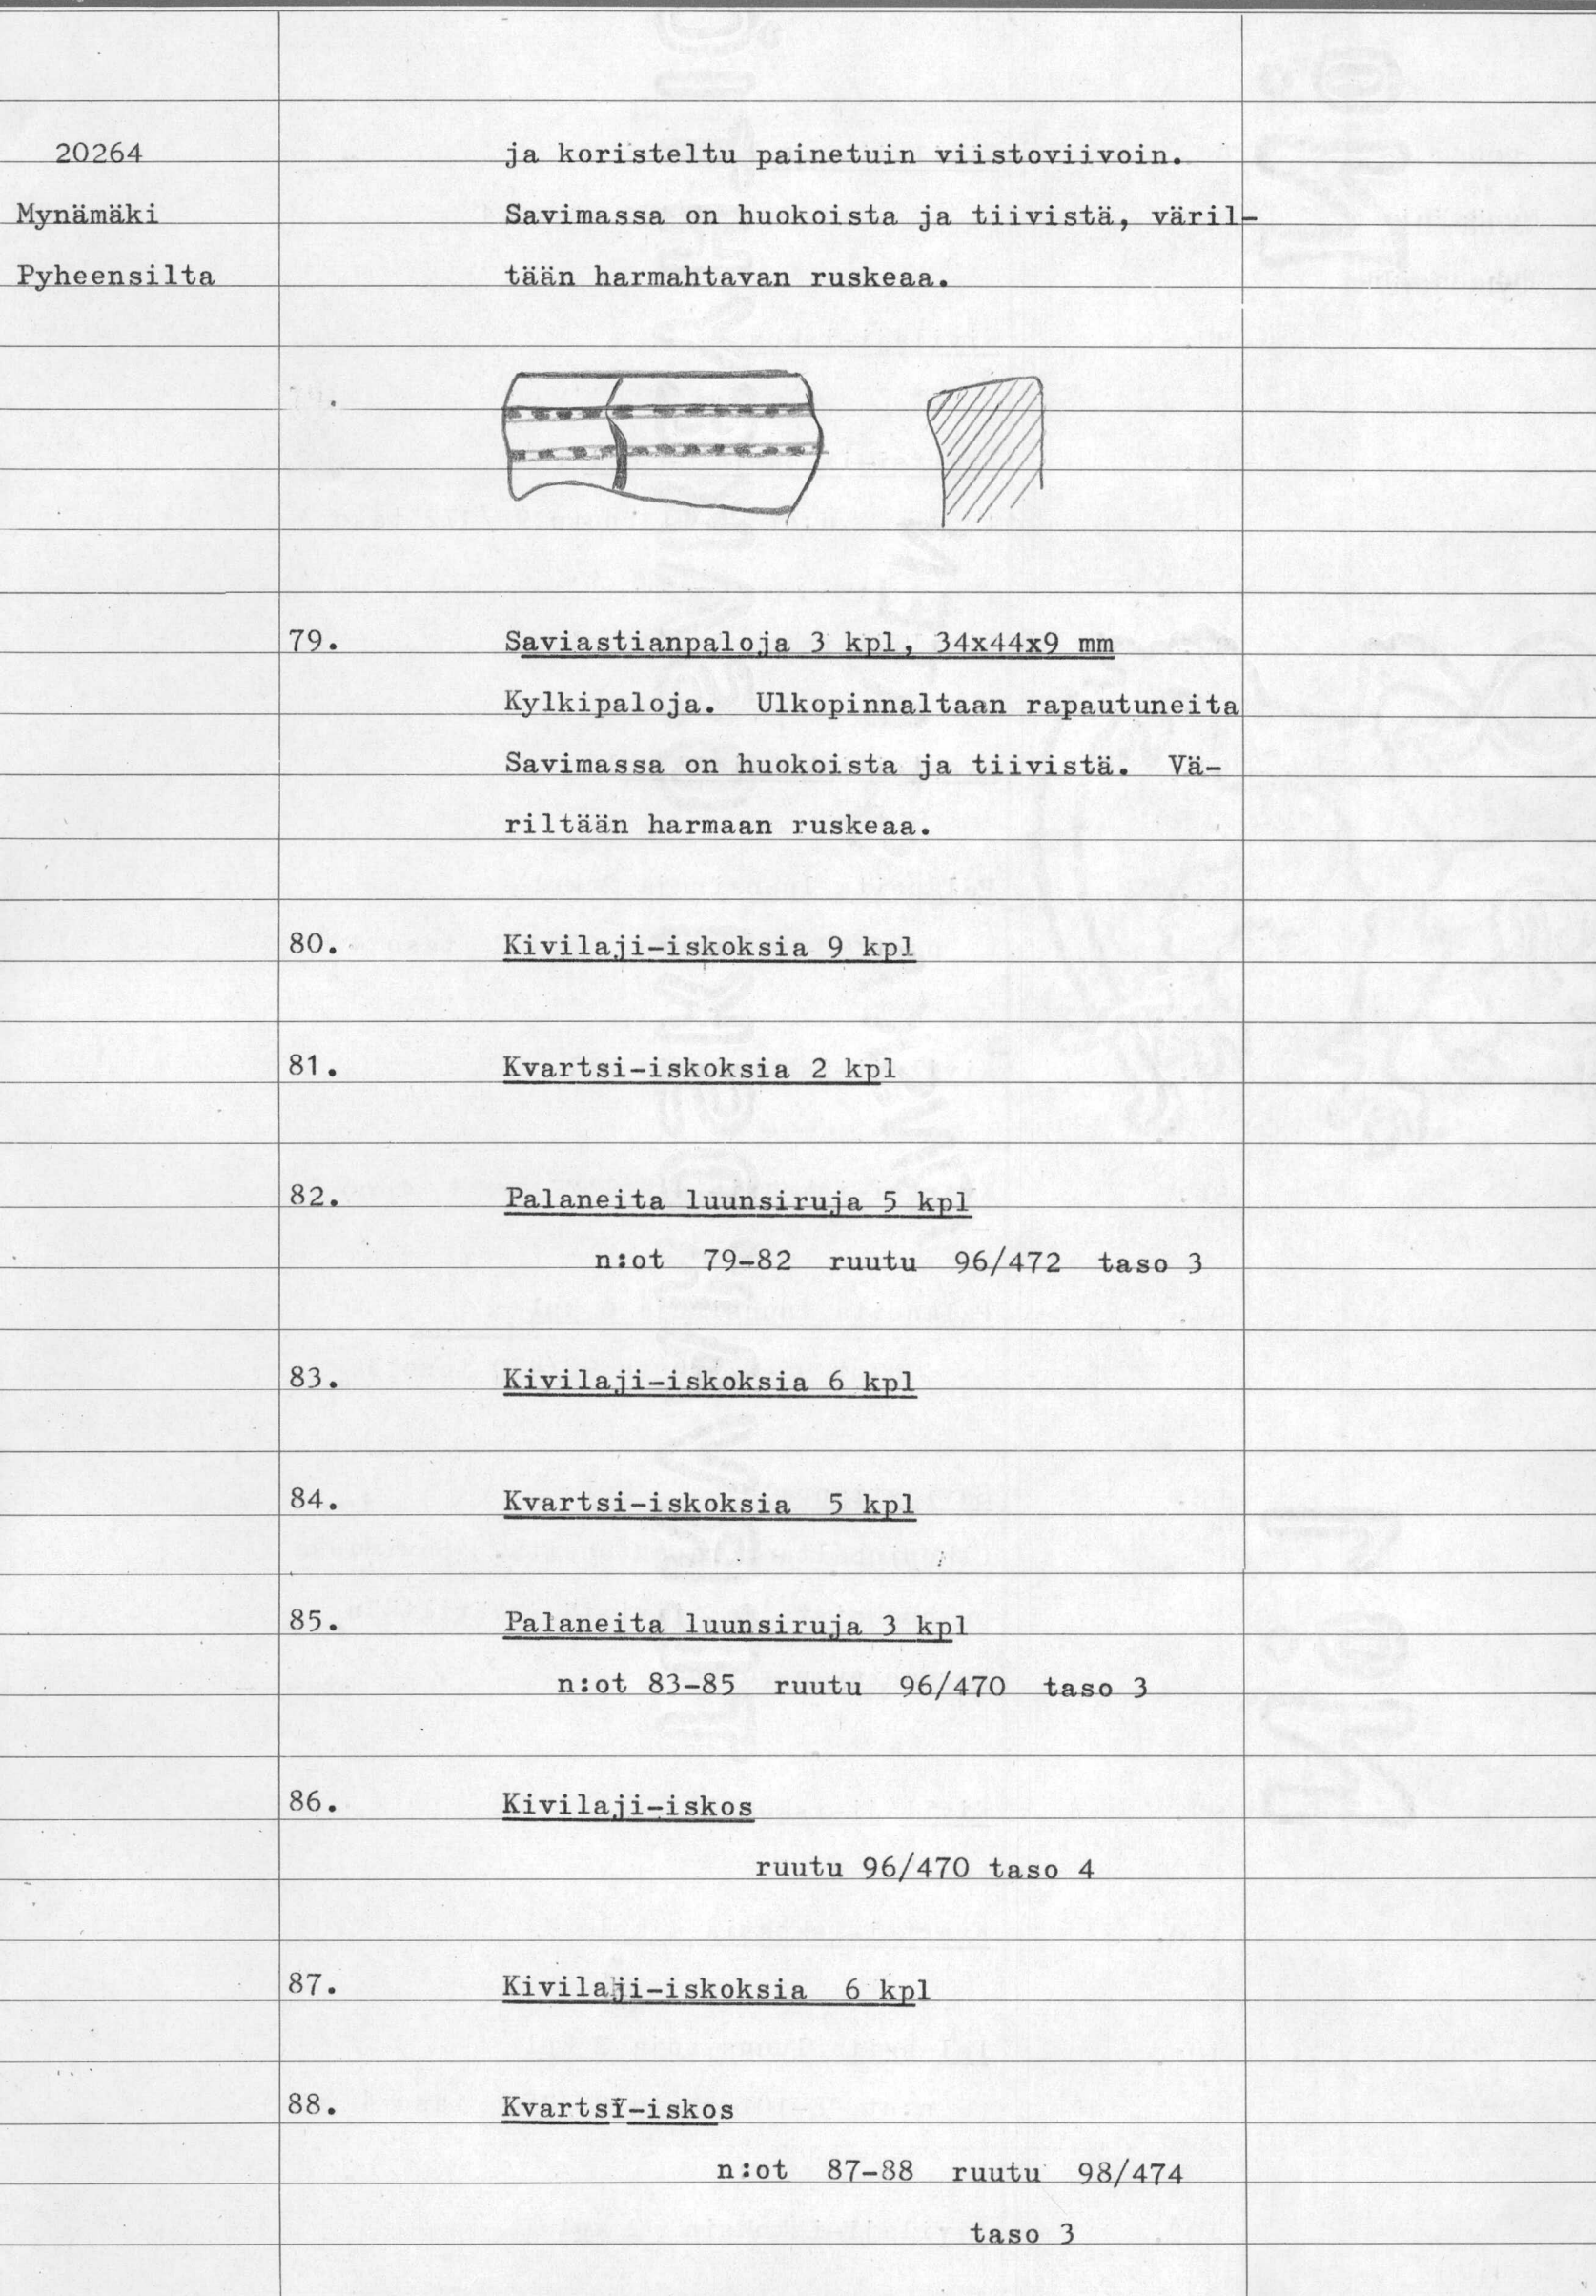 20264 ja koristeltu painetuin viistoviivoin.
Mynämäki Savimassa on huokoista ja tiivistä, väril-
Pyheensilta tään harmahtavan ruskeaa.
79. Saviastianpaloja 3 kpl, 34x44x9 mm
Kylkipaloja. Ulkopinnaltaan rapautuneita
Savimassa on huokoista ja tiivistä. Vä-
riltään harmaan ruskeaa.
80. Kivilaji-iskoksia 9 kpl
81. Kvartsi-iskoksia 2 kpl
82. Palaneita luunsiruja 5 kpl
n:ot 79-82 ruutu 96/472 taso 3
83. Kivilaji-iskoksia 6 kpl
84. Kvartsi-iskoksia 5 kpl
85. Palaneita luunsiruja 3 kpl
n:ot 83-85 ruutu 96/470 taso 3
86. Kivilaji-iskos
ruutu 96/470 taso 4
87. Kivilaji-iskoksia 6 kpl
88. Kvartsi-iskos
n:ot 87-88 ruutu 98/474
taso 3